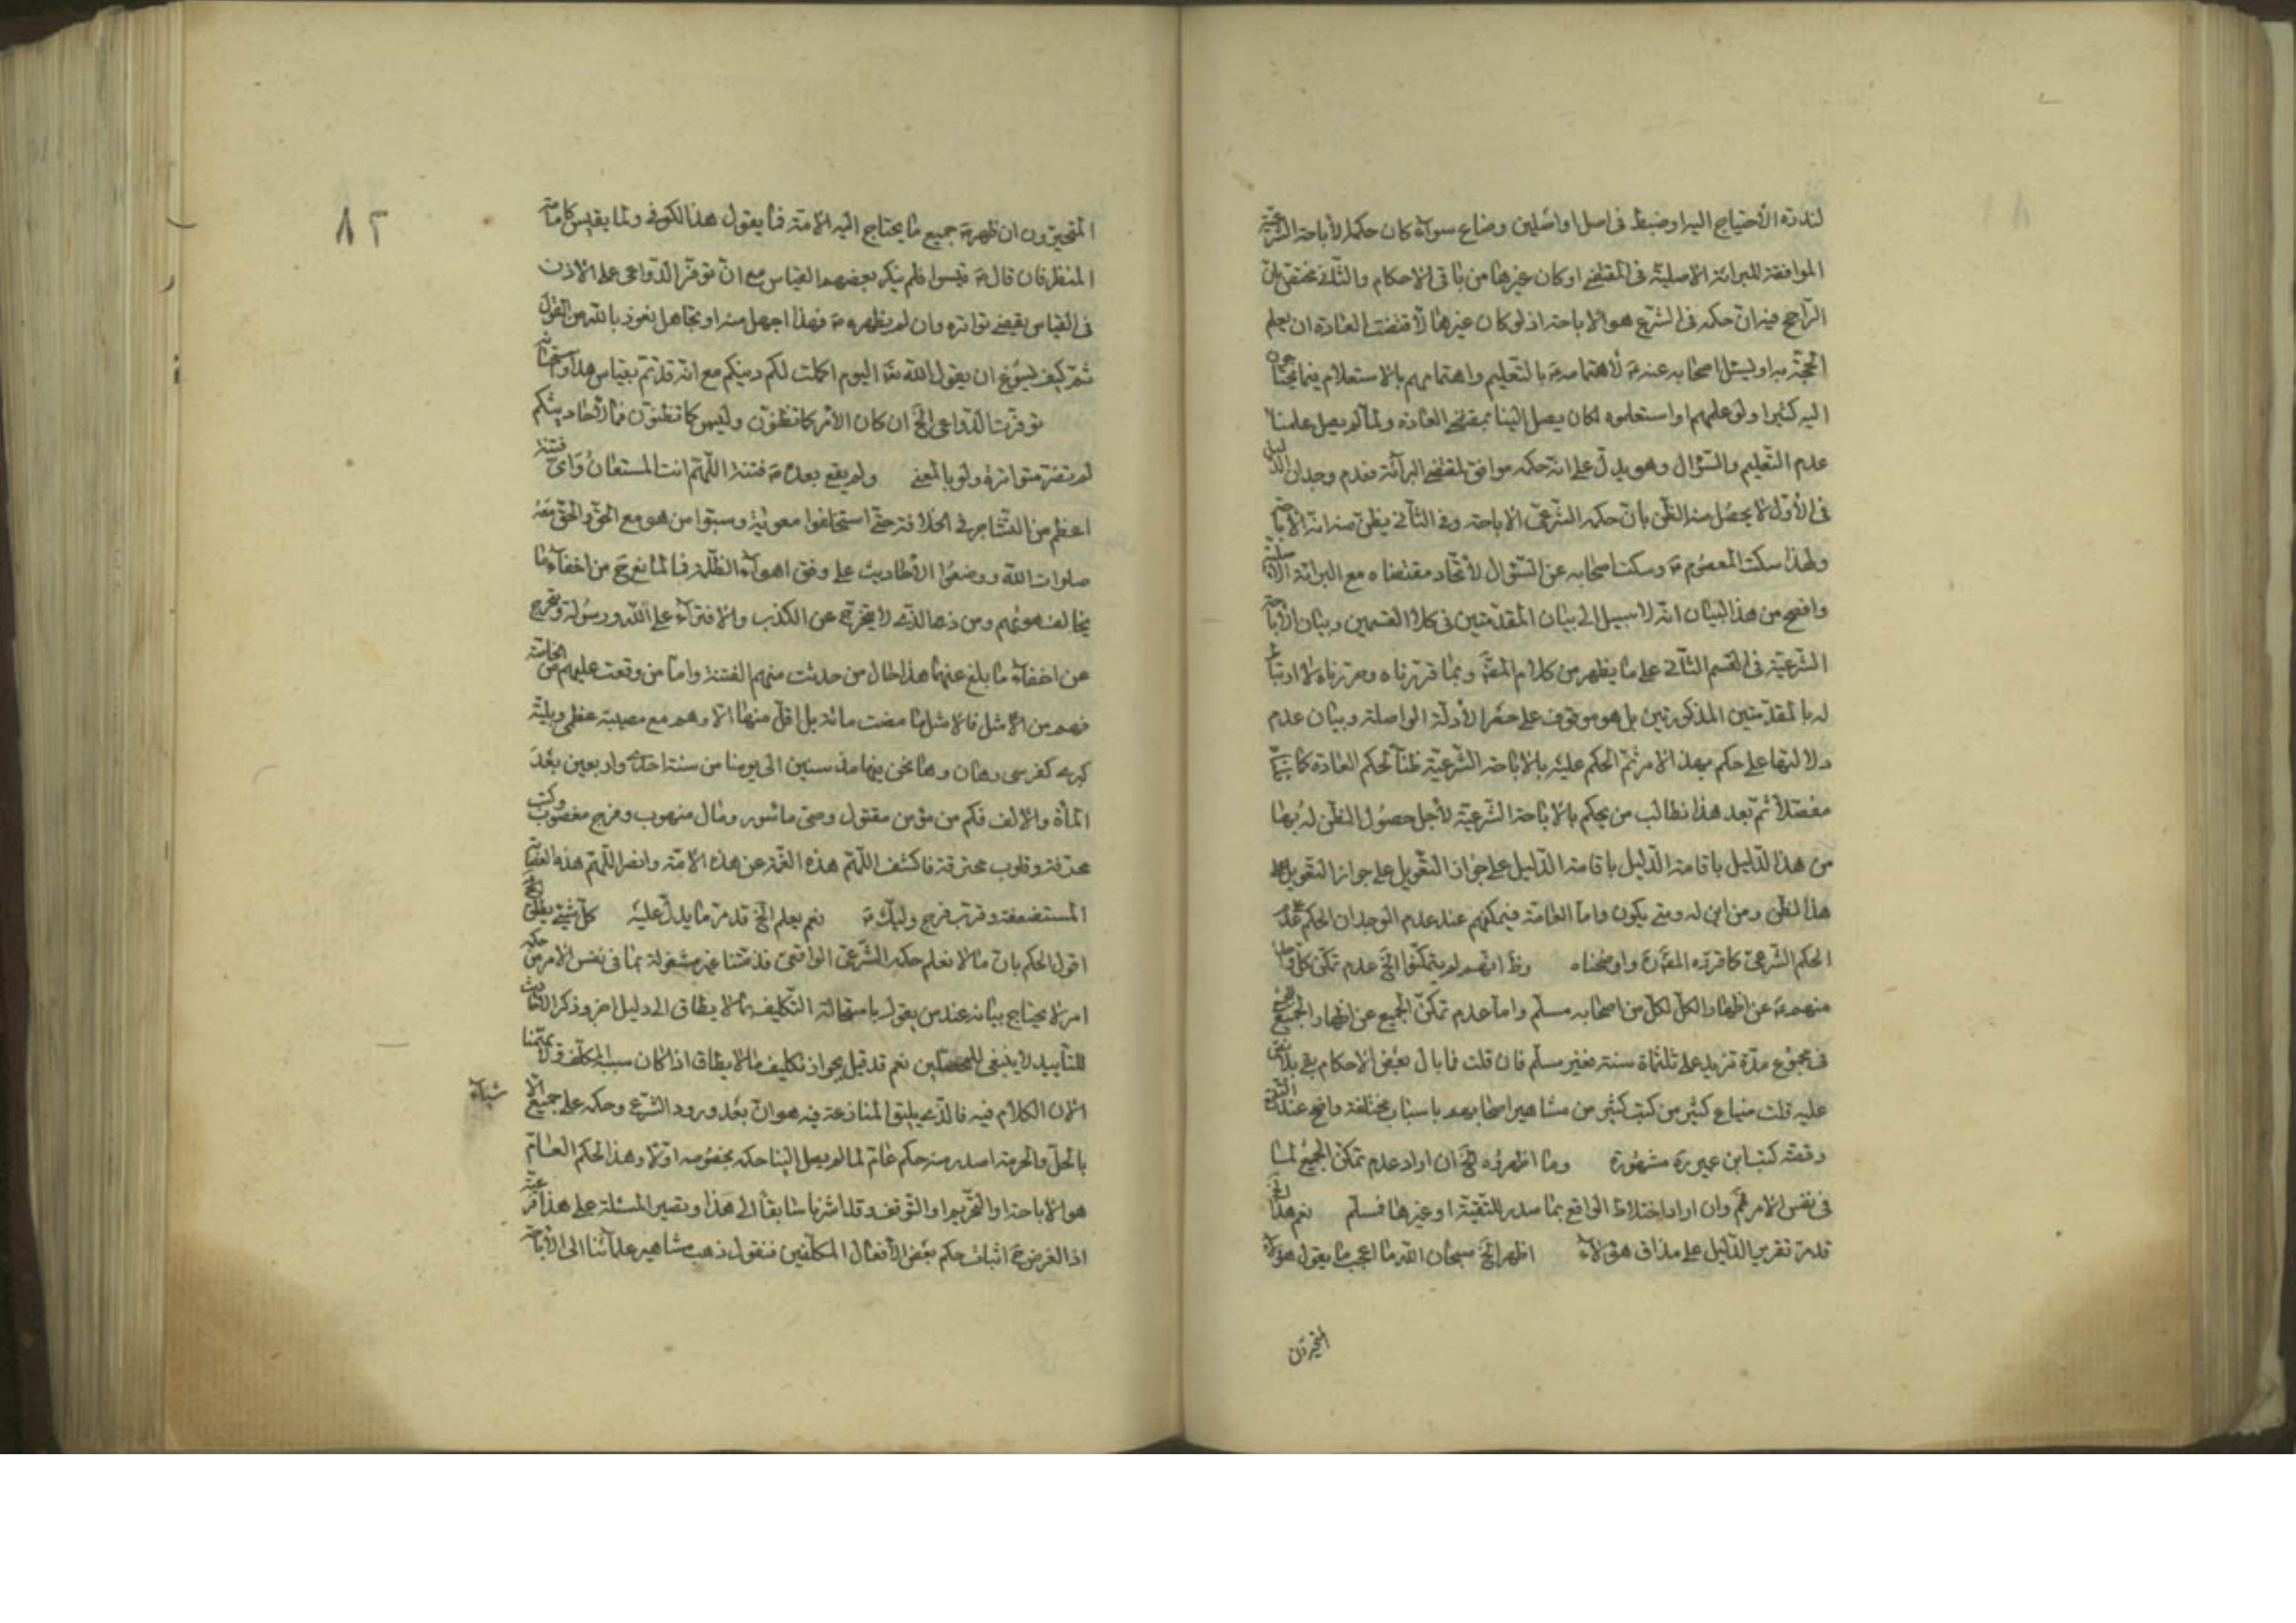 لندرة الاحتياج اليه او ضبط فى اصل او اصلين وضاع سوآء كان حكمه الاباحة الشرعية
الموافقة للبرائة الاصلية فى المقتضى او كان غيرها من باقى الاحكام والثانى محتق بان
الراجح فيه ان حكمه فى الشرع هو الاباحة اذ لو كان غيرها لاقتضت العادة ان يعلم
الحجّة به او يسئل اصحابه عنه ع لاهتمامه ع بالتعليم واهتمامهم بالاستعلام فيما يحتاجون
اليه كثيرا ولو علمهم او استعلموه لكان يصل الينا بمقتضى العادة ولما لم يصل علمنا
عدم التعليم والسّؤال وهو يدلّ على انّ حكمه موافق لمقتضى البرآئة فعدم وجدان الدليل
فى الأوّل لا يحصل منه الظّن بانّ حكمه الشّرعىّ الاباحة وفى الثّانى يظنّ منه انّه الاباحة
ولهذا سكت المعصوم ع وسكت اصحابه عن السّؤال لاتّحاد مقتضاه مع البرائة الاصلية
واضح من هذا البيان انّه لا سبيل الى بيان المقدّمتين فى كلا القسمين وبيان الاباحة
الشّرعيّة فى القسم الثّانى على ما يظهر من كلام المصّ وبما قررناه وحررناه لا ارتباط
له بالمقدّمتين المذكورتين بل هو موقوف على حصر الأدلّة الواصلة وبيان عدم
دلالتها على حكم بهذا الامر ثمّ الحكم عليه بالاباحة الشّرعيّة ظنّا لحكم العادة كما بيّنا
مفصّلاً ثمّ بعد هذا نطالب من يحكم بالاباحة الشّرعيّة لأجل حصول الظّن له بها
من هذا الدّليل باقامة الدّليل باقامة الدّليل على جواز التّعويل على جواز التّعويل على
هذا الظّن ومن اين له ومتى يكون وامّا العامّة فيمكنهم عند عدم الوجدان الحكم بعدم
الحكم الشّرعىّ كما قرّره المصّ واوضحناه وظ انّهم لم يتمكّنوا الخ عدم تمكّن كلّ واحد
منهم ع عن اظهار الكلّ لكلّ من اصحابه مسلّم وامّا عدم تمكّن الجميع عن اظهار الجميع
فى مجموع مدّة تزيد على ثلثمأة سنة فغير مسلّم فان قلت فما بال بعض الاحكام بقى بلا نص
عليه قلت ضياع كثير من كتب كثير من مشاهير اصحابهم باسباب مختلفة واضح عند التتبع
وقصّة كتب ابن عمير ره مشهورة وما اظهروه الخ ان اراد عدم تمكّن الجميع لما
فى نفس الامر فمم وان اراد اختلاط الواقع بما صدر للتقيّة او غيرها فمسلّم نعم هذا الخ
قد مرّ تقرير الدّليل على مذاق هؤلاء اظهر الخ سبحان اللّه ما اعجب ما يقول هؤلاء
المتحيّرون
المتحيّرون ان ظهر ع جميع ما يحتاج اليه الامّة فما يقول هذا الكوفى ولما يقيس كامامه
المنظر فان قال ع قيسوا فلم ينكر بعضهم القياس مع انّ توفّر الدّواعى على الاذن
فى القياس يقتضى تواتره وان لم يظهره ع فهذا اجهل منه او تجاهل نعوذ باللّه من القول
ثمّ كيف ليسوغ ان يقول اللّه تعا اليوم اكملت لكم دينكم مع انّه قد تمّ بقياس هذا واستحسانه
توفّرت الدّواعى الخ ان كان الأمر كما تظنّون وليس كما تظنّون فما لأحاديثكم
لم تصر متواترة ولو بالمعنى ولم يقع بعده ع فتنة اللّهمّ انت المستعان واىّ فتنة
اعظم من التّشاجر فى الخلافة حتّى استخلفوا معوية وسبّوا من هو مع الحقّ والحقّ معه
صلوات اللّه ووضعوا الأحاديث على وفق اهوآء الظّلمة فما لنا نعرج من اخفآء ما
يخالف هويهم ومن ذا الّذى لا يتحرّج عن الكذب والافتراء على اللّه ورسوله ويتحرج
عن اخفآء ما بلغ عنهما هذا حال من حدثت منهم الفتنة وامّا من وقعت عليهم من الخاصّة
فهم من الامثل فالامثل ما مضت مائة بل اقلّ منها الا وهم مع مصيبة عظمى وبليّة
كبرى كفرسى رهان وها نحن فيها مذ سنين الى يومنا من سنة احدى واربعين بعد
المأة والالف فكم من مؤمن مقتول وصبى مأسور ومال منهوب وفرج مغصوب وكتب
محرقة وقلوب محترقة فاكشف اللّهمّ هذه الغمّة عن هذه الامّة وانصر اللّهمّ هذه العصابة
المستضعفة وقرّب فرج وليّك ع نعم يعلم الخ قد مرّ ما يدلّ عليه كلّ شئ يطلق الخ
اقول الحكم بانّ ما لا نعلم حكمه الشّرعىّ الواقعىّ فذمّتنا غير مشغولة بما فى نفس الامر من حكمه
امر لا يحتاج بيانه عند من يقول باستحالة التّكليف بما لا يطاق الى دليل اخر وذكر الثالث
للتأييد لا ينبغى للمحصّلين نعم قد قيل بجواز تكليف ما لا يطاق اذا كان سببه المكلّف ولا يهمّنا
الان الكلام فيه فالّذى يليق المنازعة فيه هو انّ بعد ورود الشّرع وحكمه على جميع الا
شياء
بالحلّ والحرمة اصدر منه حكم عامّ لما لم يصل الينا حكمه بخصوصه اولا وهذا الحكم العامّ
هو الاباحة او التّحريم او التّوقف وقد اشرنا سابقاً الى هذا وتصير المسئلة على هذا فرعيّة
اذ الغرض ح اثبات حكم بعض الأفعال المكلّفين فنقول ذهب مشاهير علمائنا الى الاباحة
٨٢